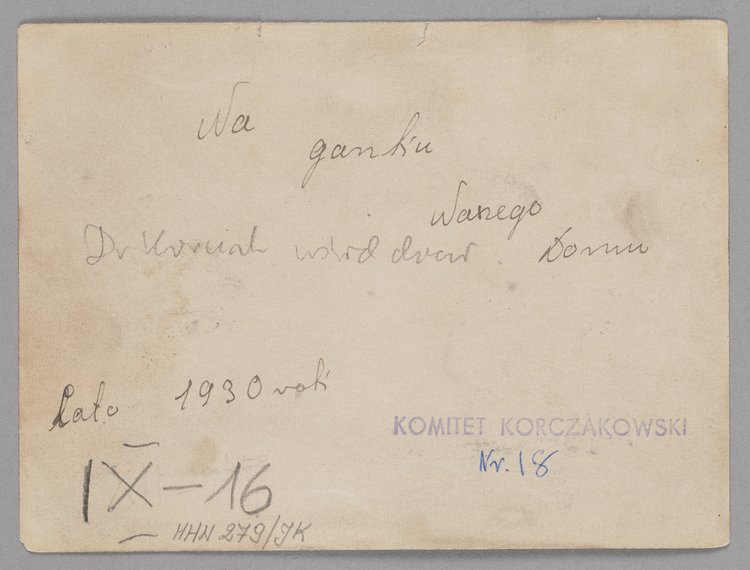 Na
ganku
Naszego
Dr Korczak wśród dzieci. Domu
Lato 1930 roku
KOMITET KORCZAKOWSKI
Nr. 18
IX-16
279/JK